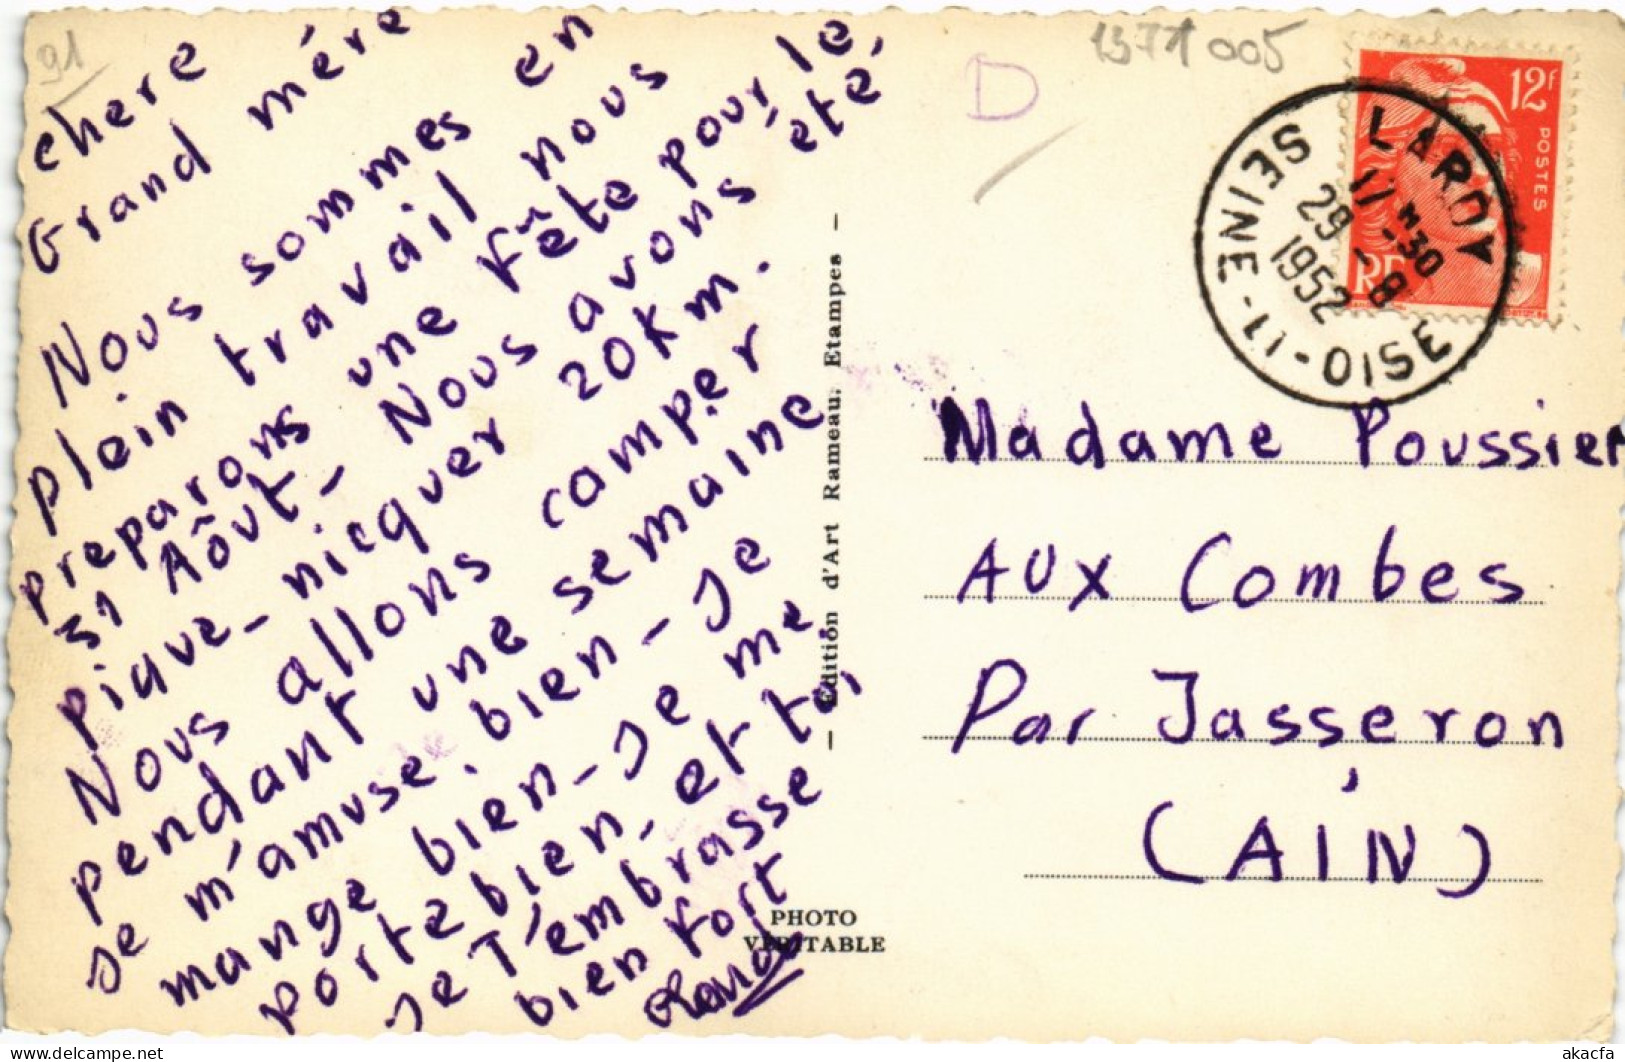 91
chere
Grand mére
Nous sommes en
plein travail nous
preparons une Fête pour le,
31 Aôut - Nous avons été
pique-nicquer 20Km.
Nous allons camper
pendant une semaine
Je m'amuse. bien - Je
mange bien - Je me
porte bien, et toi,
Je T'embrasse
bien Fort
1371 005
D
12F
POSTES
RF
LARDY
11H-30
29-8
1952
SEINE-ET-OISE
- Edition d'Art Rameau, Etampes -
Madame Poussier
AUX Combes
Par Jasseron
(AIN)
PHOTO
VERITABLE
delcampe.net
akacfa